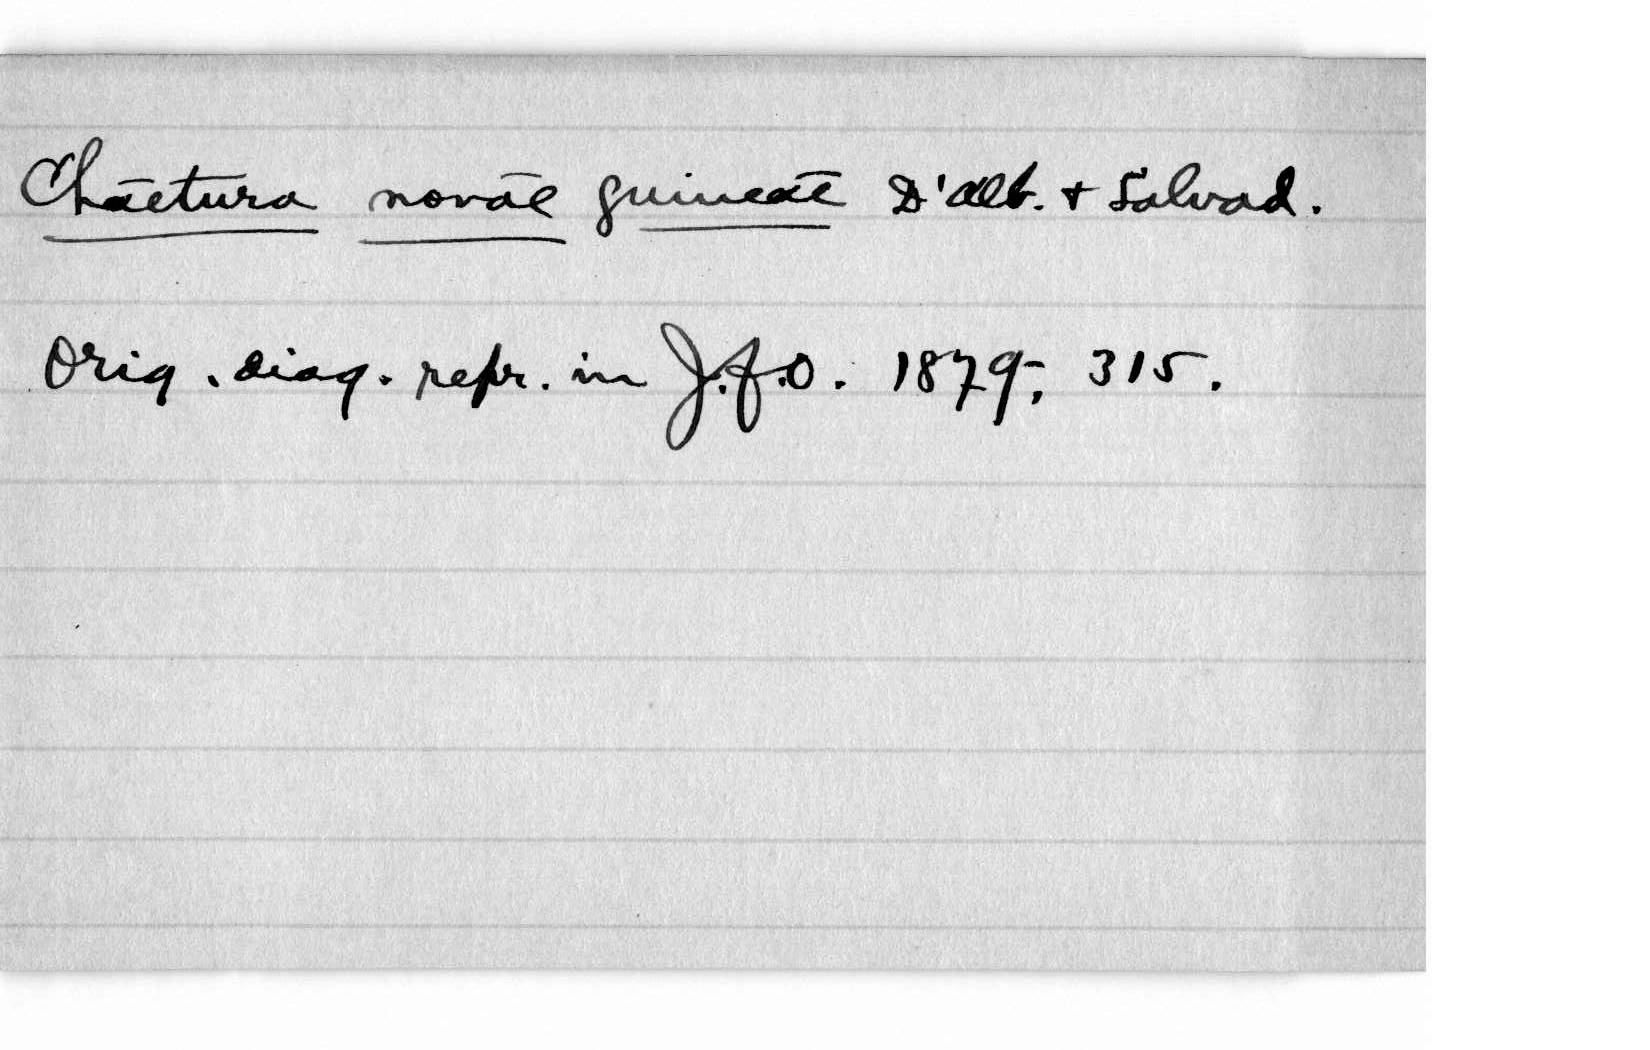 Chaetura novae guineae D'Alb. + Salvad.
Orig. diag. repr. in J.f.O. 1879, 315.